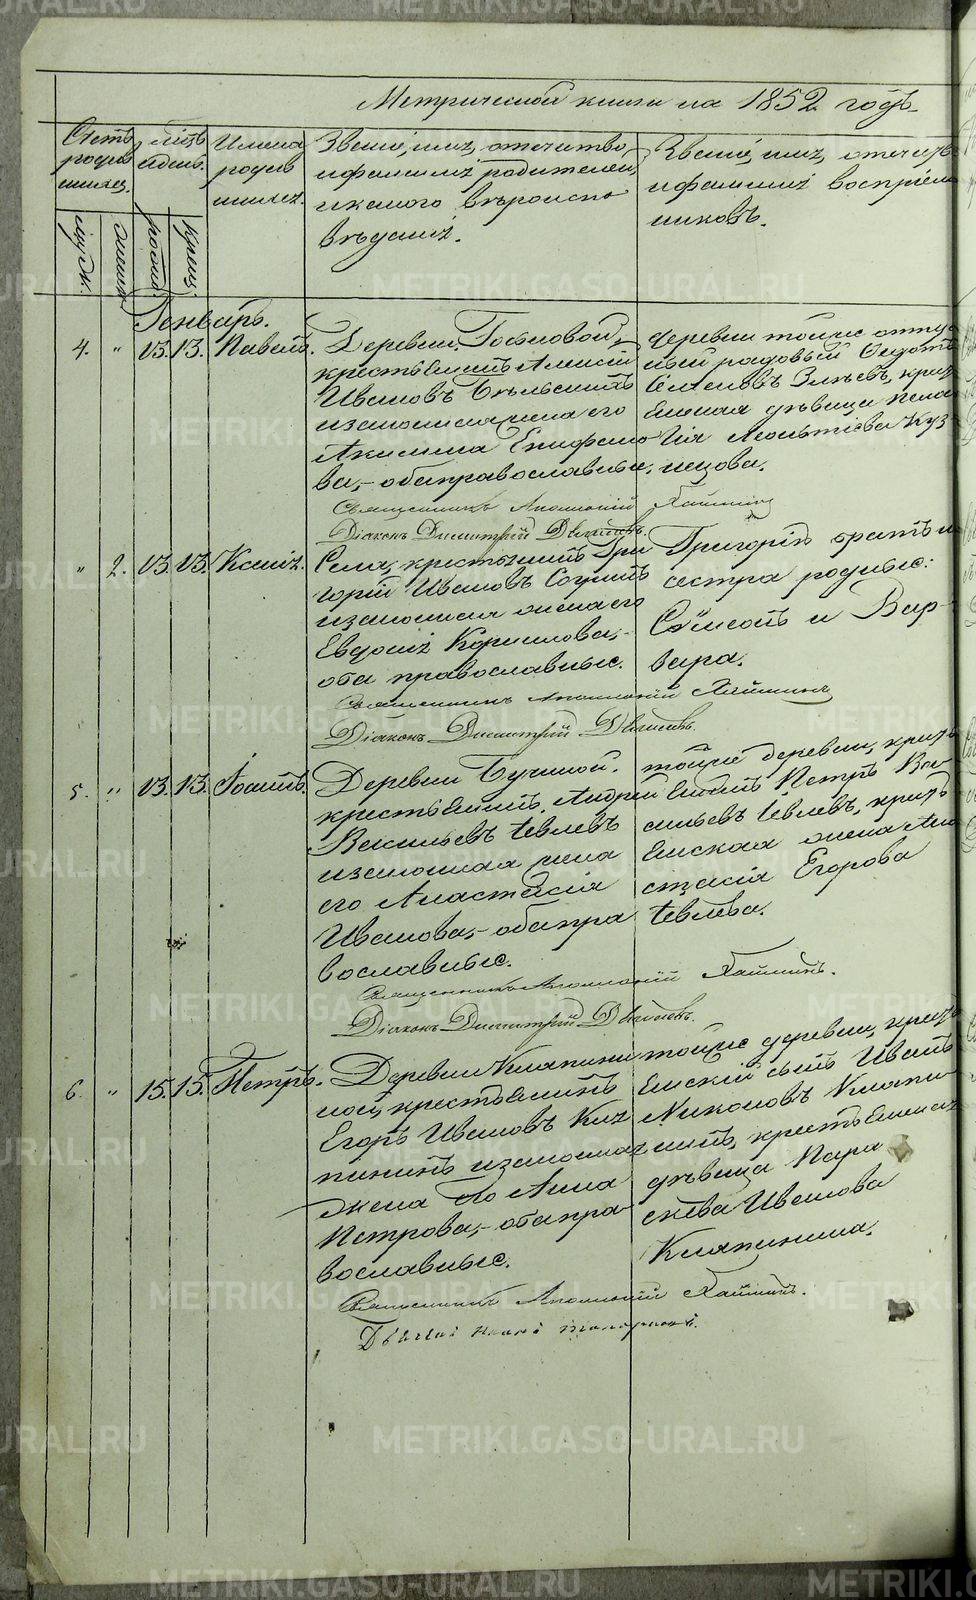 Метрической книги на 1852 годъ
Счетъ родив шихся.
муж.
женск.
Мѣсяцъ и день.
рожд.
крещ.
Имена родив шихся.
Званіе, имя, отечество,
и фамилія родителей,
и какого вѣроиспо
вѣданія.
Званіе, имя, отечест
и фамилія воспріем
никовъ.
Генварь.
4. " 13. 13. Павелъ.
Деревни
крестьянинъ Алексій
Ивановъ
и законная жена его
Акилина Епифано
ва,- оба православные.
деревни тойже
рядовый Ѳедотъ
крест
янская дѣвица Пела
гія Леонтіева Куз
нецова.
Священникъ Аполлоній
Діаконъ Димитрій
" 2. 13. 13. Ксенія.
Села, крестьянинъ Гри
горій Ивановъ
и законная жена его
Евдокія Корнилова,-
оба православные.
Григорія братъ и
сестра родные:
и Вар-
вара.
Священникъ Аполлоній
Діаконъ Димитрій
5. " 13. 13. Іоаннъ.
Деревни
крестьянинъ Андрей
Васильевъ Іевлевъ
и законная жена
его Анастасія
Иванова,- оба пра
вославные.
тойже деревни, крест
янинъ Петръ Ва
сильевъ Іевлевъ, крест
янская жена Ана
стасія Егорова
Іевлева.
Священникъ Аполлоній
Діаконъ Димитрій
6. " 15. 15. Петръ.
Деревни Кляпини
ной, крестьянинъ
Егоръ Ивановъ Кля
пининъ и законная
жена его Анна
Петрова,- оба пра
вославные.
тойже деревни, крест
янскій сынъ Иванъ
Никоновъ Кляпи
нинъ, крестьянская
дѣвица Пара
скева Иванова
Кляпинина.
Священникъ Аполлоній
METRIKI.GASO-URAL.RU